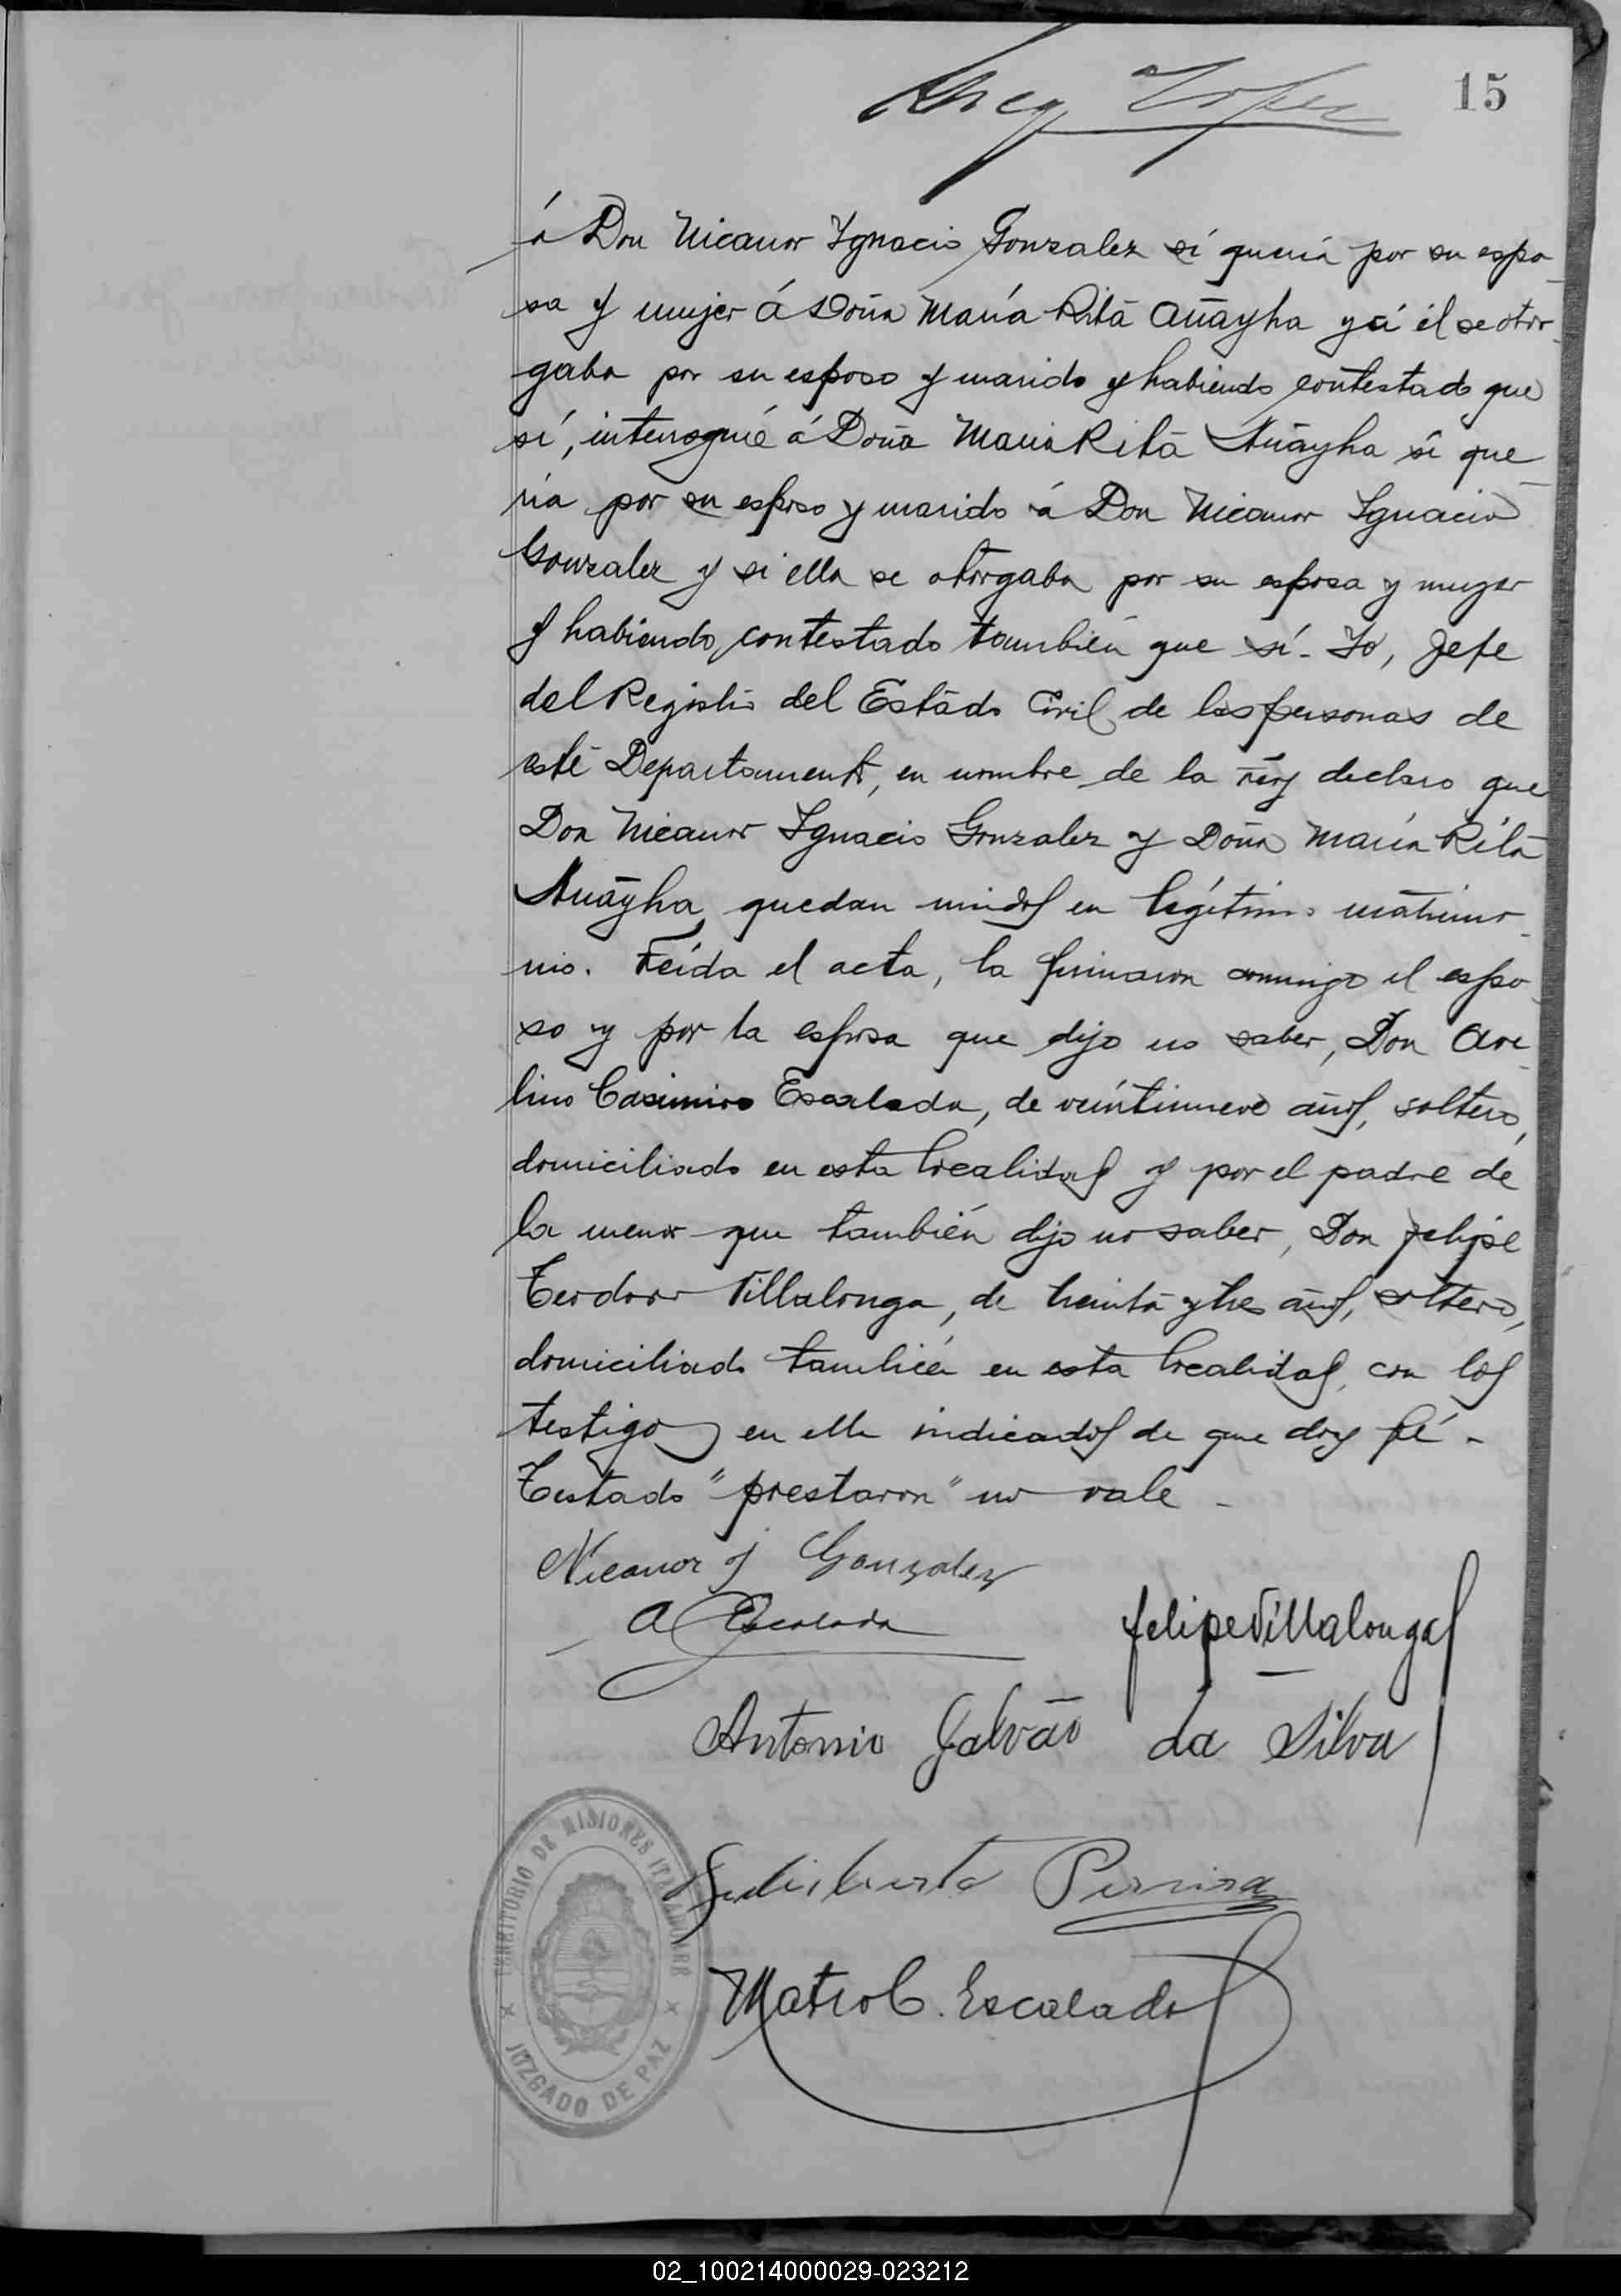 15
á Don Nicanor Ygnacio Gonzalez sí queria por su espo-
sa y mujer á Doña María Rita Anayha y si él se otor-
gaba por su esposo y marido y habiendo contestado que
sí, interrogué á Doña Maria Rita Anayha si que-
ria por su esposo y marido á Don Nicanor Ignacio
Gonzalez y si ella se otorgaba por su esposa y muger
y habiendo contestado también que sí- Yo, Jefe
del Registro del Estado Civil de las personas de
este Departamento, en nombre de la Ley declaro que
Don Nicanor Ygnacio Gonzalez y Doña María Rita
Anayha quedan unidos en legítimo matrimo-
nio. Leída el acta, la firmaron conmigo el espo-
so y por la esposa que dijo no saber, Don Ave-
lino Casimiro Escalada, de veintinueve años, soltero,
domiciliado en esta localidad y por el padre de
la menor que también dijo no saber, Don Felipe
Teodoro Villalonga, de treinta y tres años, soltero,
domiciliado también en esta localidad, con los
testigos en ella indicados de que doy fé-
Testado "prestaron" no vale-
Nicanor I Gonzalez
A Escalada
Felipe Villalonga
Antonio Galvão da Silva
Pereira
Mateo C. Escalada
TERRITORIO DE MISIONES
JUZGADO DE PAZ
02_100214000029-023212